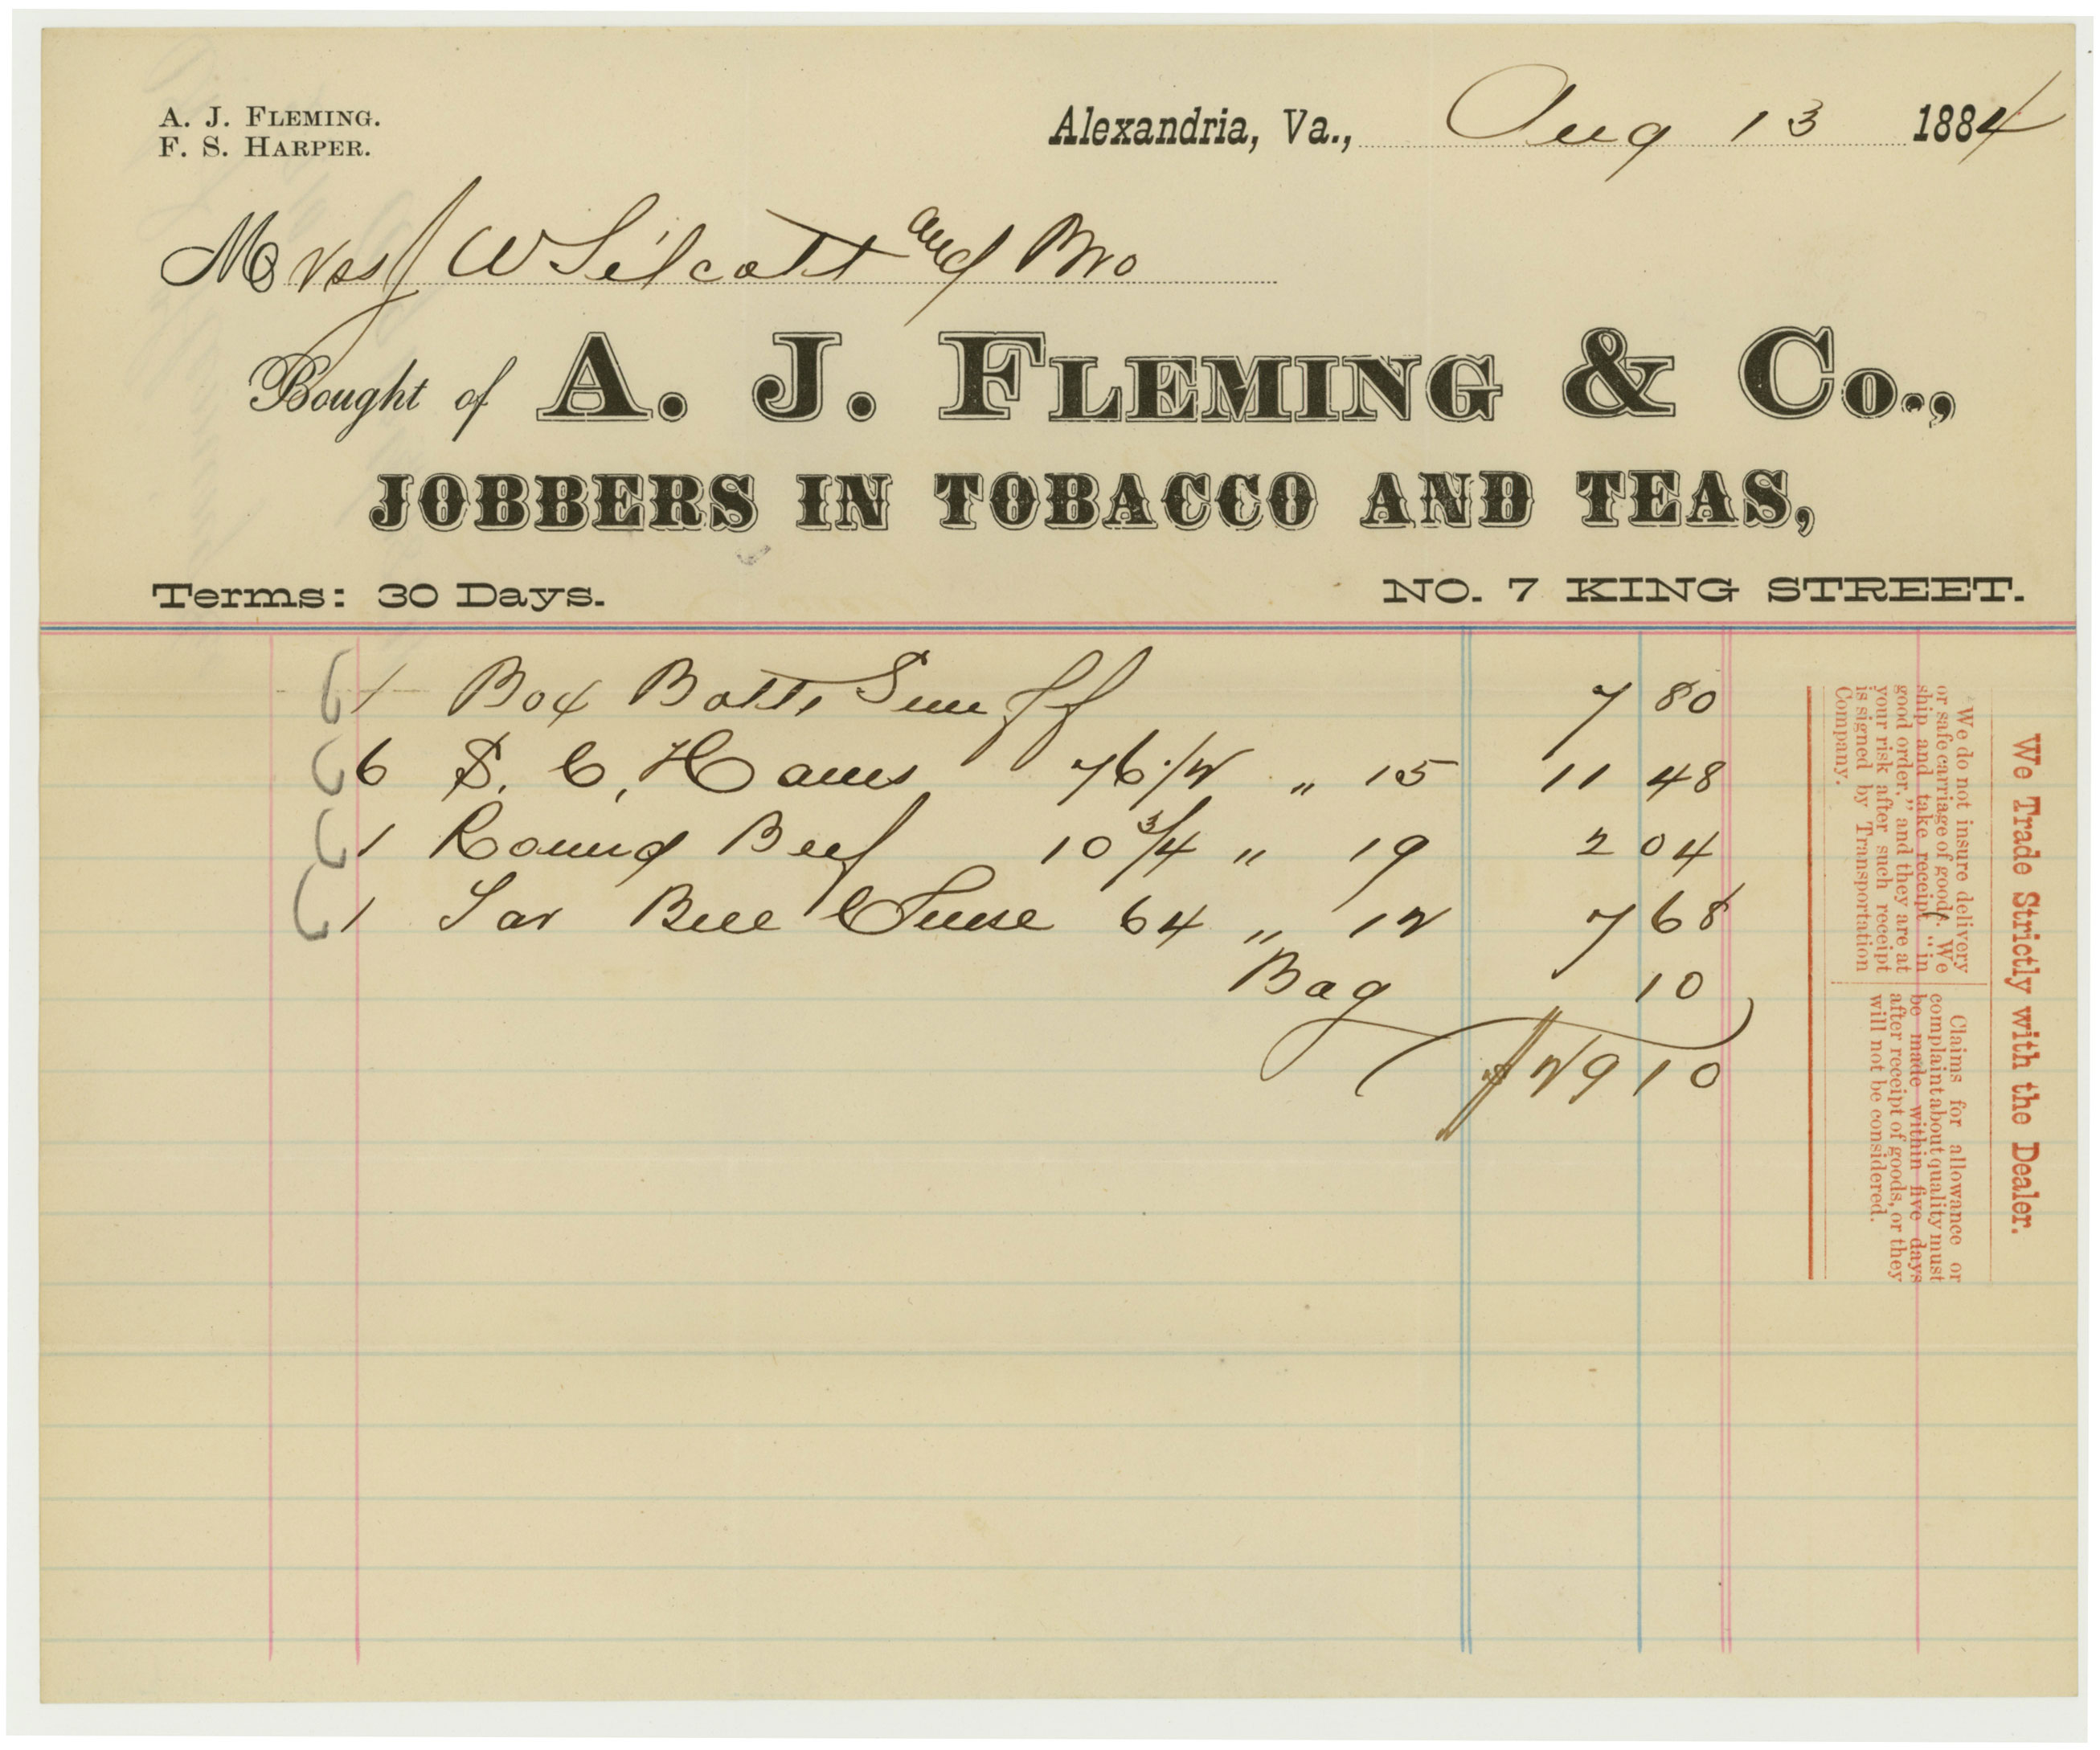 A. J. FLEMING.
F. S. HARPER.
Alexandria, Va., Aug 13 1884
Messrs J W Silcott and Bro
Bought of A. J. FLEMING & Co.,
JOBBERS IN TOBACCO AND TEAS,
Terms: 30 Days.
NO. 7 KING STREET.
1 Box Botts Snuff 7 80
6 S. C. Hams 76 1/2 " 15 11 48
1 Round Beef 10 3/4 " 19 2 04
1 64 " 12 7 68
Bag 10
$29 10
We Trade Strictly with the Dealer.
We do not insure delivery
or safe carriage of goods. We
ship and take receipt "in
good order," and they are at
your risk after such receipt
is signed by Transportation
Company.
Claims for allowance or
complaint about quality must
be made within five days
after receipt of goods, or they
will not be considered.